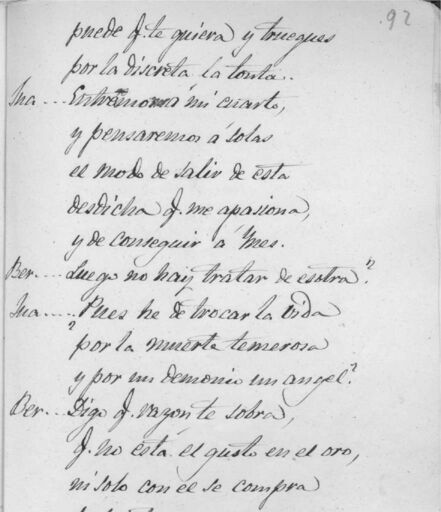 92
puede q. le quiera y trueques
por la discreta la tonta..
Jua.... Entremos á mi cuarto,
y pensaremos á solas
el modo de salir de esta
desdicha q. me apasiona,
y de conseguir á Ynes.
Ber.... Luego no hay tratar de esotra?
Jua.... Pues he de trocar la vida
? por la muerte temerosa
y por un demonio un angel?
Ber... Digo q. razon te sobra,
q. no está el gusto en el oro,
ni solo con el se compra